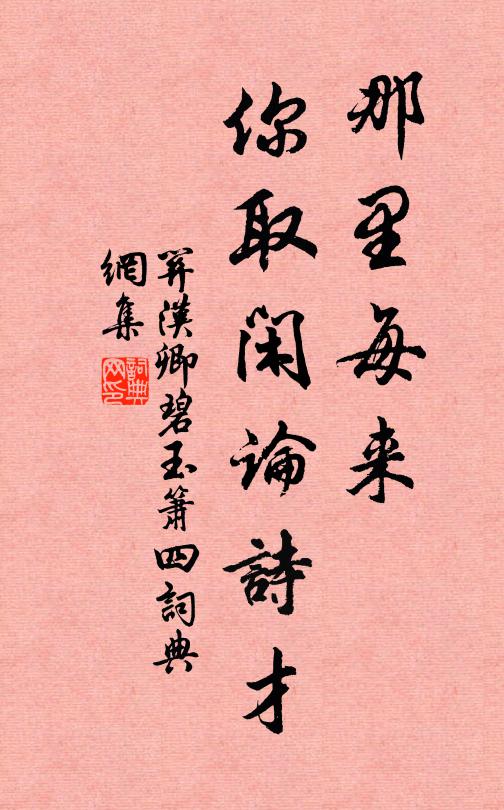 那里每来
你取閑論詩才
關漢卿碧玉簫四詞典
網集
詞典
网印